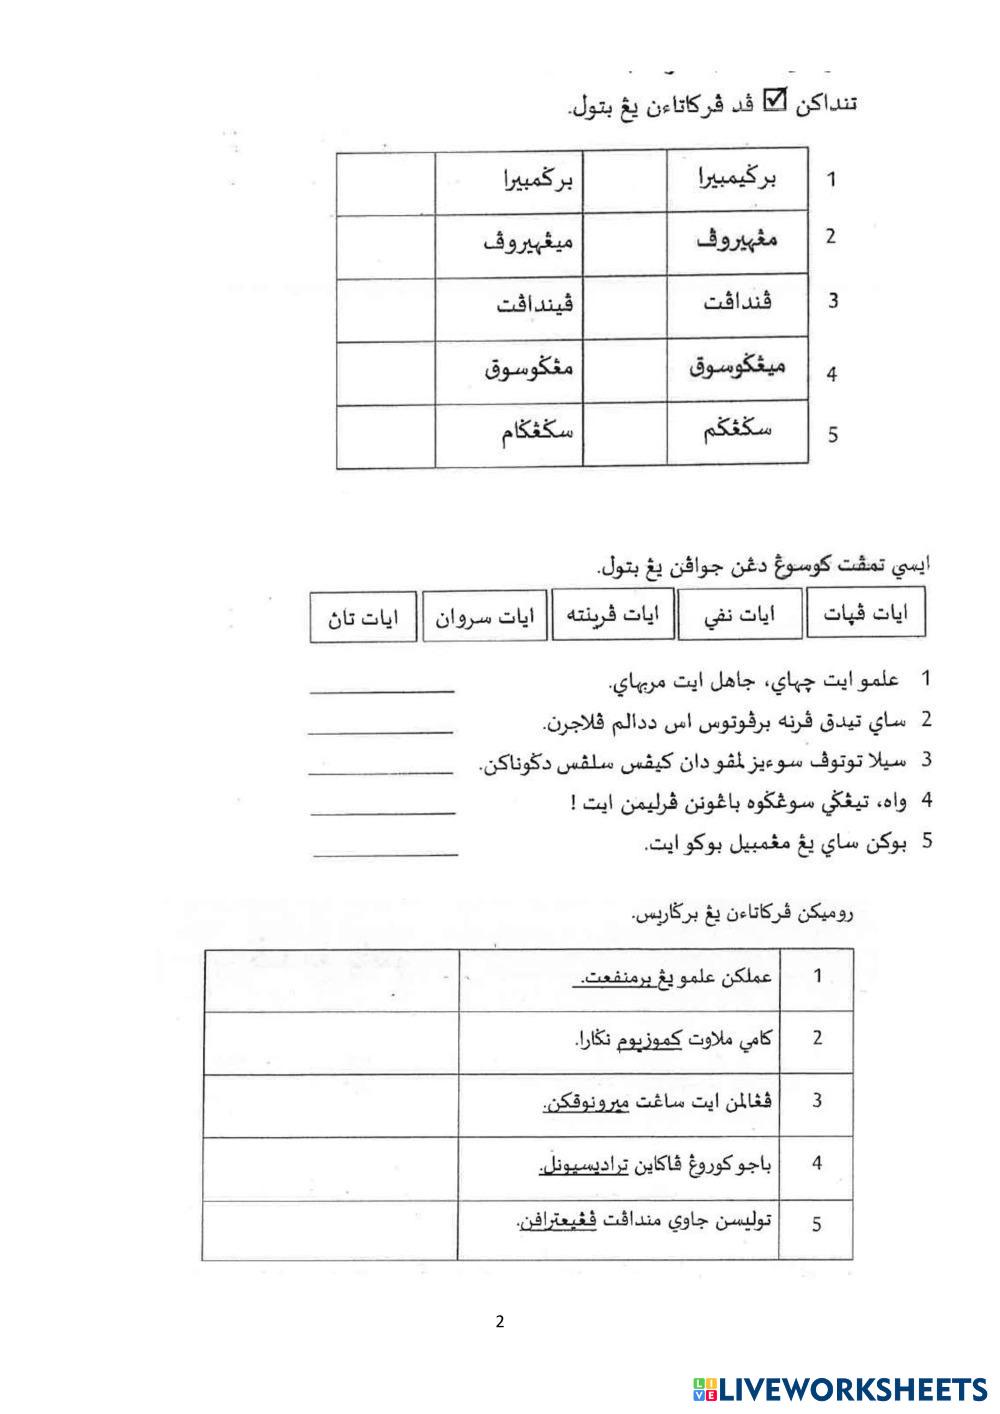 تنداکن ☑ ڤد ڤرکاتاءن يڠ بتول.
1 برݢيمبيرا برݢمبيرا
2 مڠهيروڤ ميڠهيروڤ
3 ڤنداڤت ڤينداڤت
4 ميڠݢوسوق مڠݢوسوق
5 سݢڠݢم سݢڠݢام
ايسي تمڤت كوسوڠ دڠن جواڤن يڠ بتول.
ايات ڤڽات ايات نفي ايات ڤرينته ايات سروان ايات تاڽ
1 علمو ايت چهاي، جاهل ايت مربهاي.
2 ساي تيدق ڤرنه برڤوتوس اس ددالم ڤلاجرن.
3 سيلا توتوڤ سوءيز لمڤو دان کيڤس سلڤس دݢوناکن.
4 واه، تيڠݢي سوڠݢوه باڠونن ڤرليمن ايت !
5 بوکن ساي يڠ مڠمبيل بوکو ايت.
روميکن ڤرکاتاءن يڠ برݢاريس.
1 عملکن علمو يڠ برمنفعت.
2 کامي ملاوت کموزيوم نݢارا.
3 ڤڠالمن ايت ساڠت ميرونوقکن.
4 باجو کوروڠ ڤاکاين تراديسيونل.
5 توليسن جاوي منداڤت ڤڠيعترافن.
2
LIVEWORKSHEETS